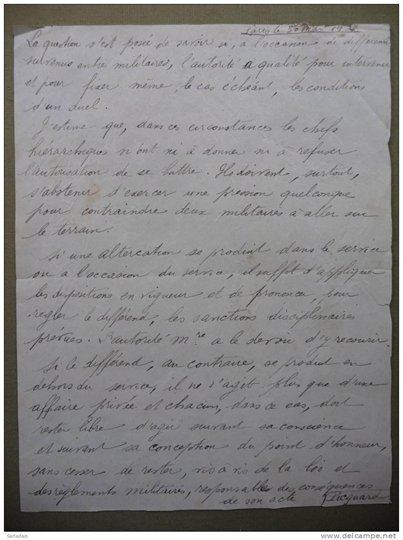 Paris le
La question s'est posée de savoir si, à l'occasion de différends
survenus entre militaires, l'autorité a qualité pour intervenir
et pour fixer même, le cas échéant, les conditions
d'un duel.
J'estime que, dans ces circonstances les chefs
hiérarchiques n'ont ni à donner ni à refuser
l'autorisation de se battre. Ils doivent, surtout,
s'abstenir d'exercer une pression quelconque
pour contraindre deux militaires à aller sur
le terrain.
Si une altercation se produit dans le service
ou à l'occasion du service, il suffit d'appliquer
les dispositions en vigueur et de prononcer, pour
régler le différend, les sanctions disciplinaires
prévues. L'autorité mre a le devoir d'y recourir.
Si le différend, au contraire, se produit en
dehors du service, il ne s'agit plus que d'une
affaire privée et chacun, dans ce cas, doit
rester libre d'agir suivant sa conscience
et suivant sa conception du point d'honneur,
sans cesser de rester, vis à vis de la loi et
des règlements militaires, responsable des conséquences
de son acte Picquart
delcampe.net